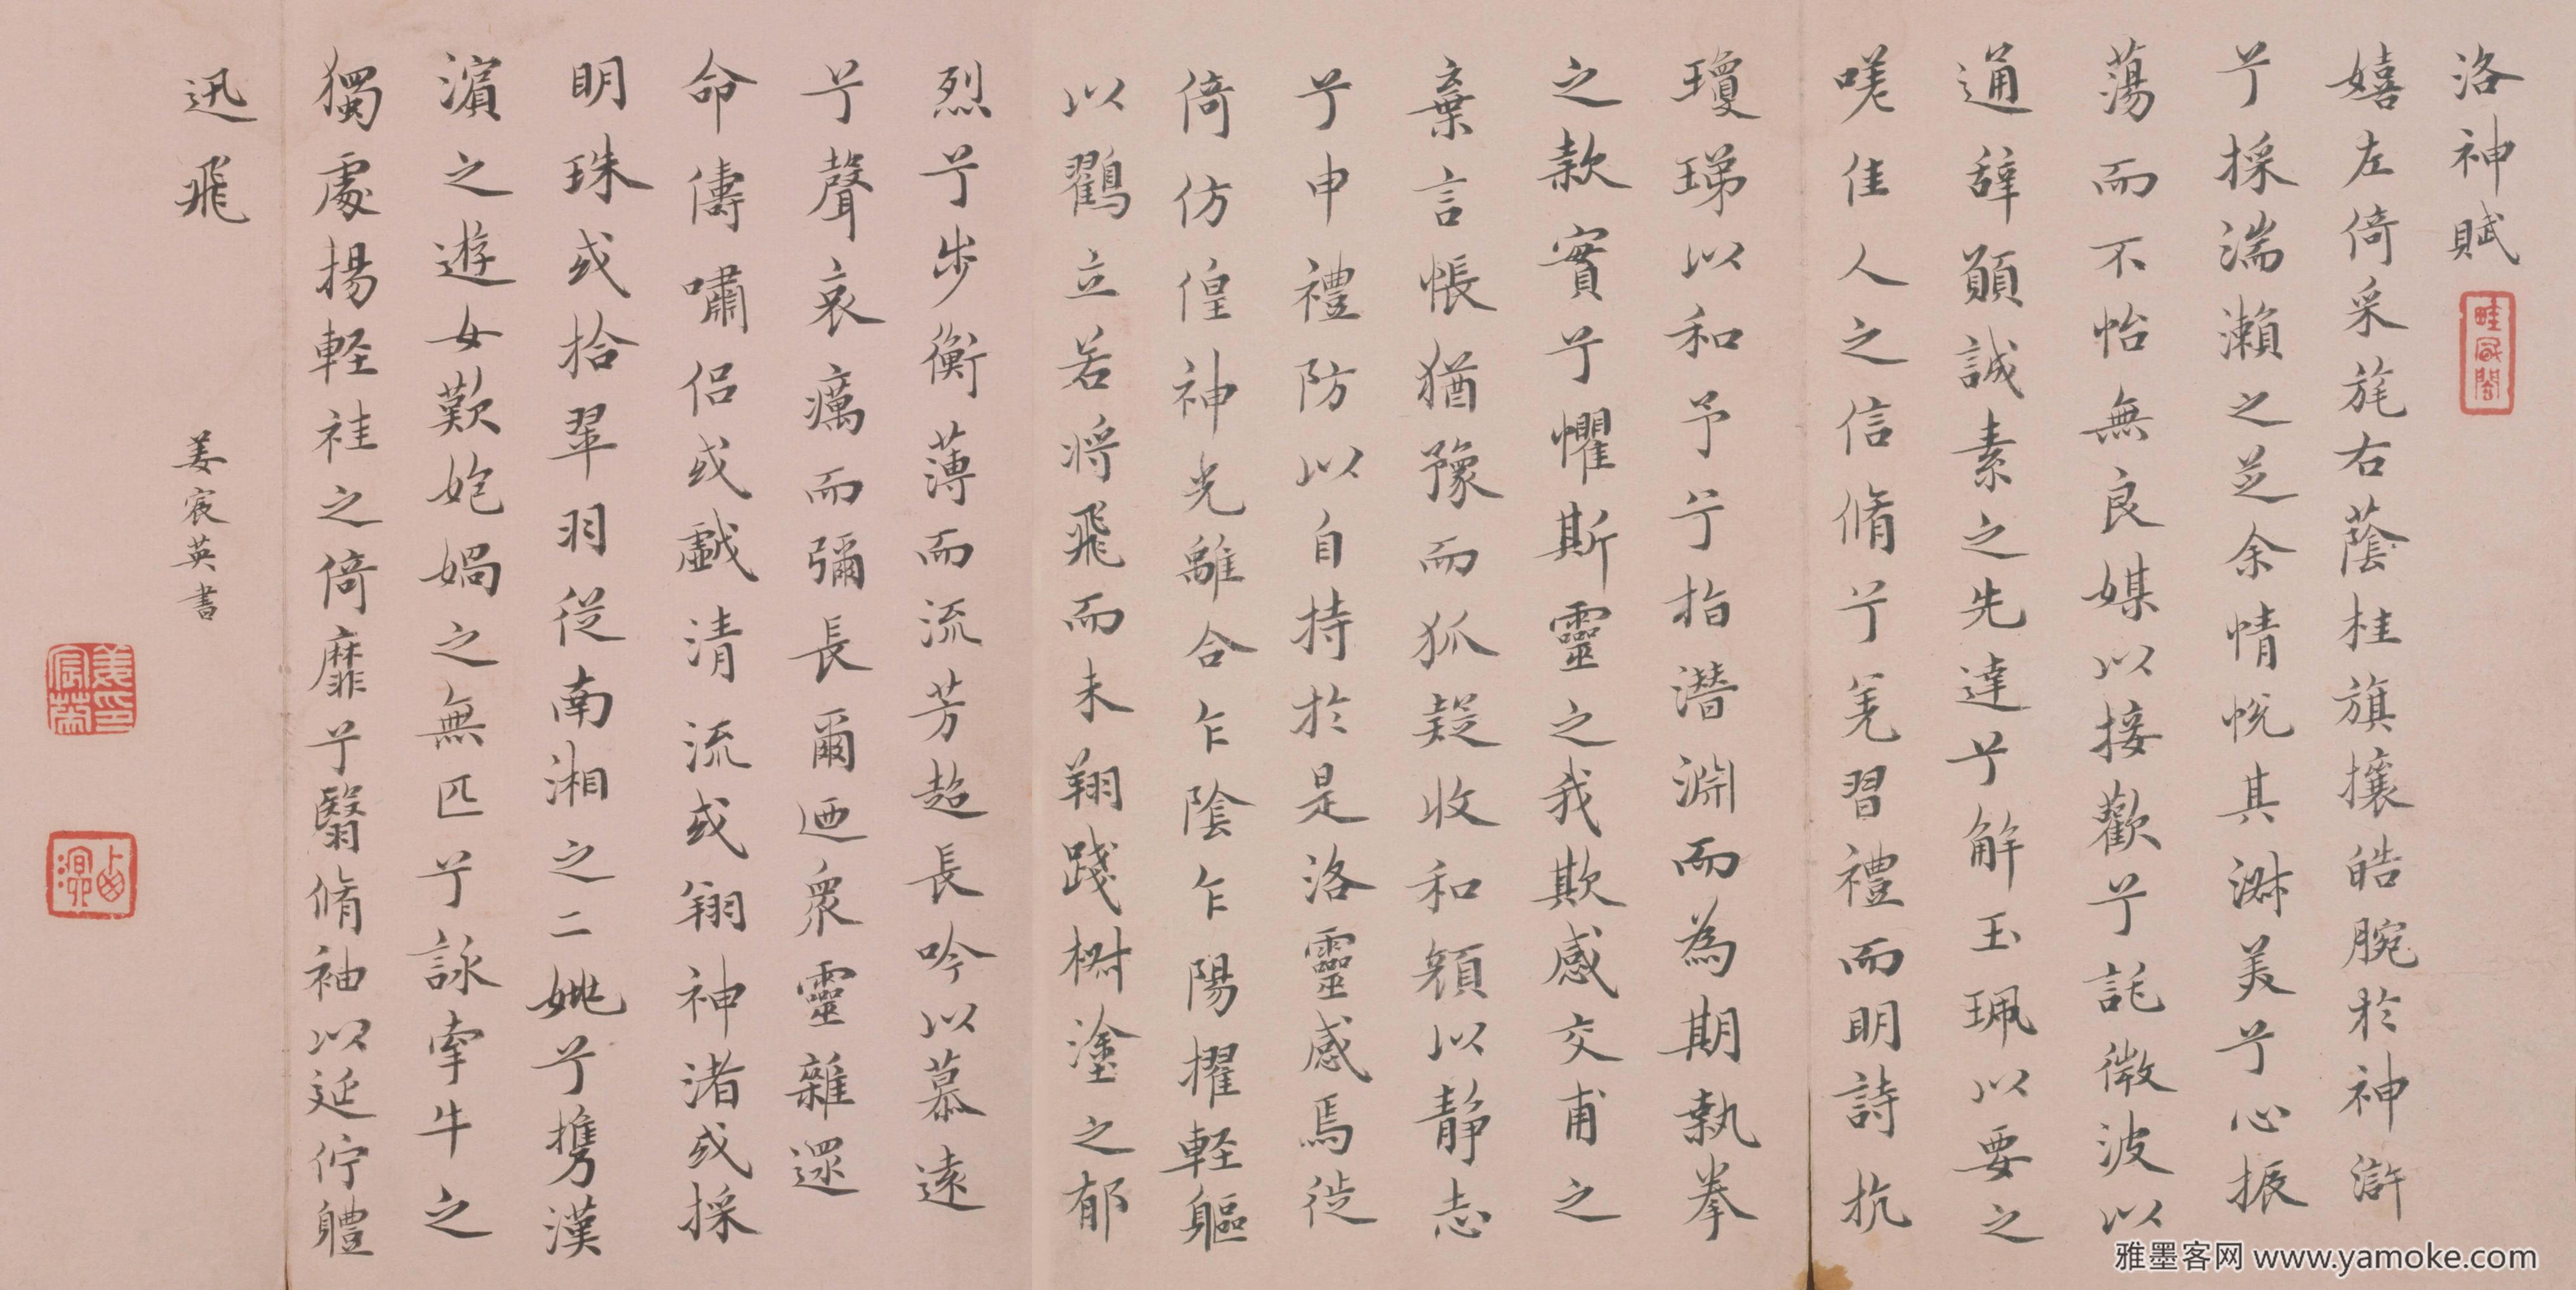 洛神賦
嬉左倚采旄右蔭桂旗攘皓腕於神滸
兮採湍瀨之芝余情悅其淑美兮心振
蕩而不怡無良媒以接歡兮託微波以
通辭願誠素之先達兮解玉珮以要之
嗟佳人之信脩兮羌習禮而明詩抗
瓊珶以和予兮指潛淵而為期執拳
之款實兮懼斯靈之我欺感交甫之
棄言悵猶豫而狐疑收和顏以静志
兮申禮防以自持於是洛靈感焉徙
倚仿偟神光離合乍陰乍陽擢軽軀
以鸛立若将飛而未翔踐椒塗之郁
烈兮步衡薄而流芳超長吟以慕遠
兮聲哀癘而彌長爾迺眾靈雜遝
命儔嘯侶或戯清流或翔神渚或採
明珠或拾翠羽從南湘之二姚兮攜漢
濱之遊女歎媧之無匹兮詠牽牛之
獨處揚軽袿之倚靡兮翳脩袖以延佇軆
迅飛
姜宸英書
姜宸英印
雅墨客网 www.yamoke.com